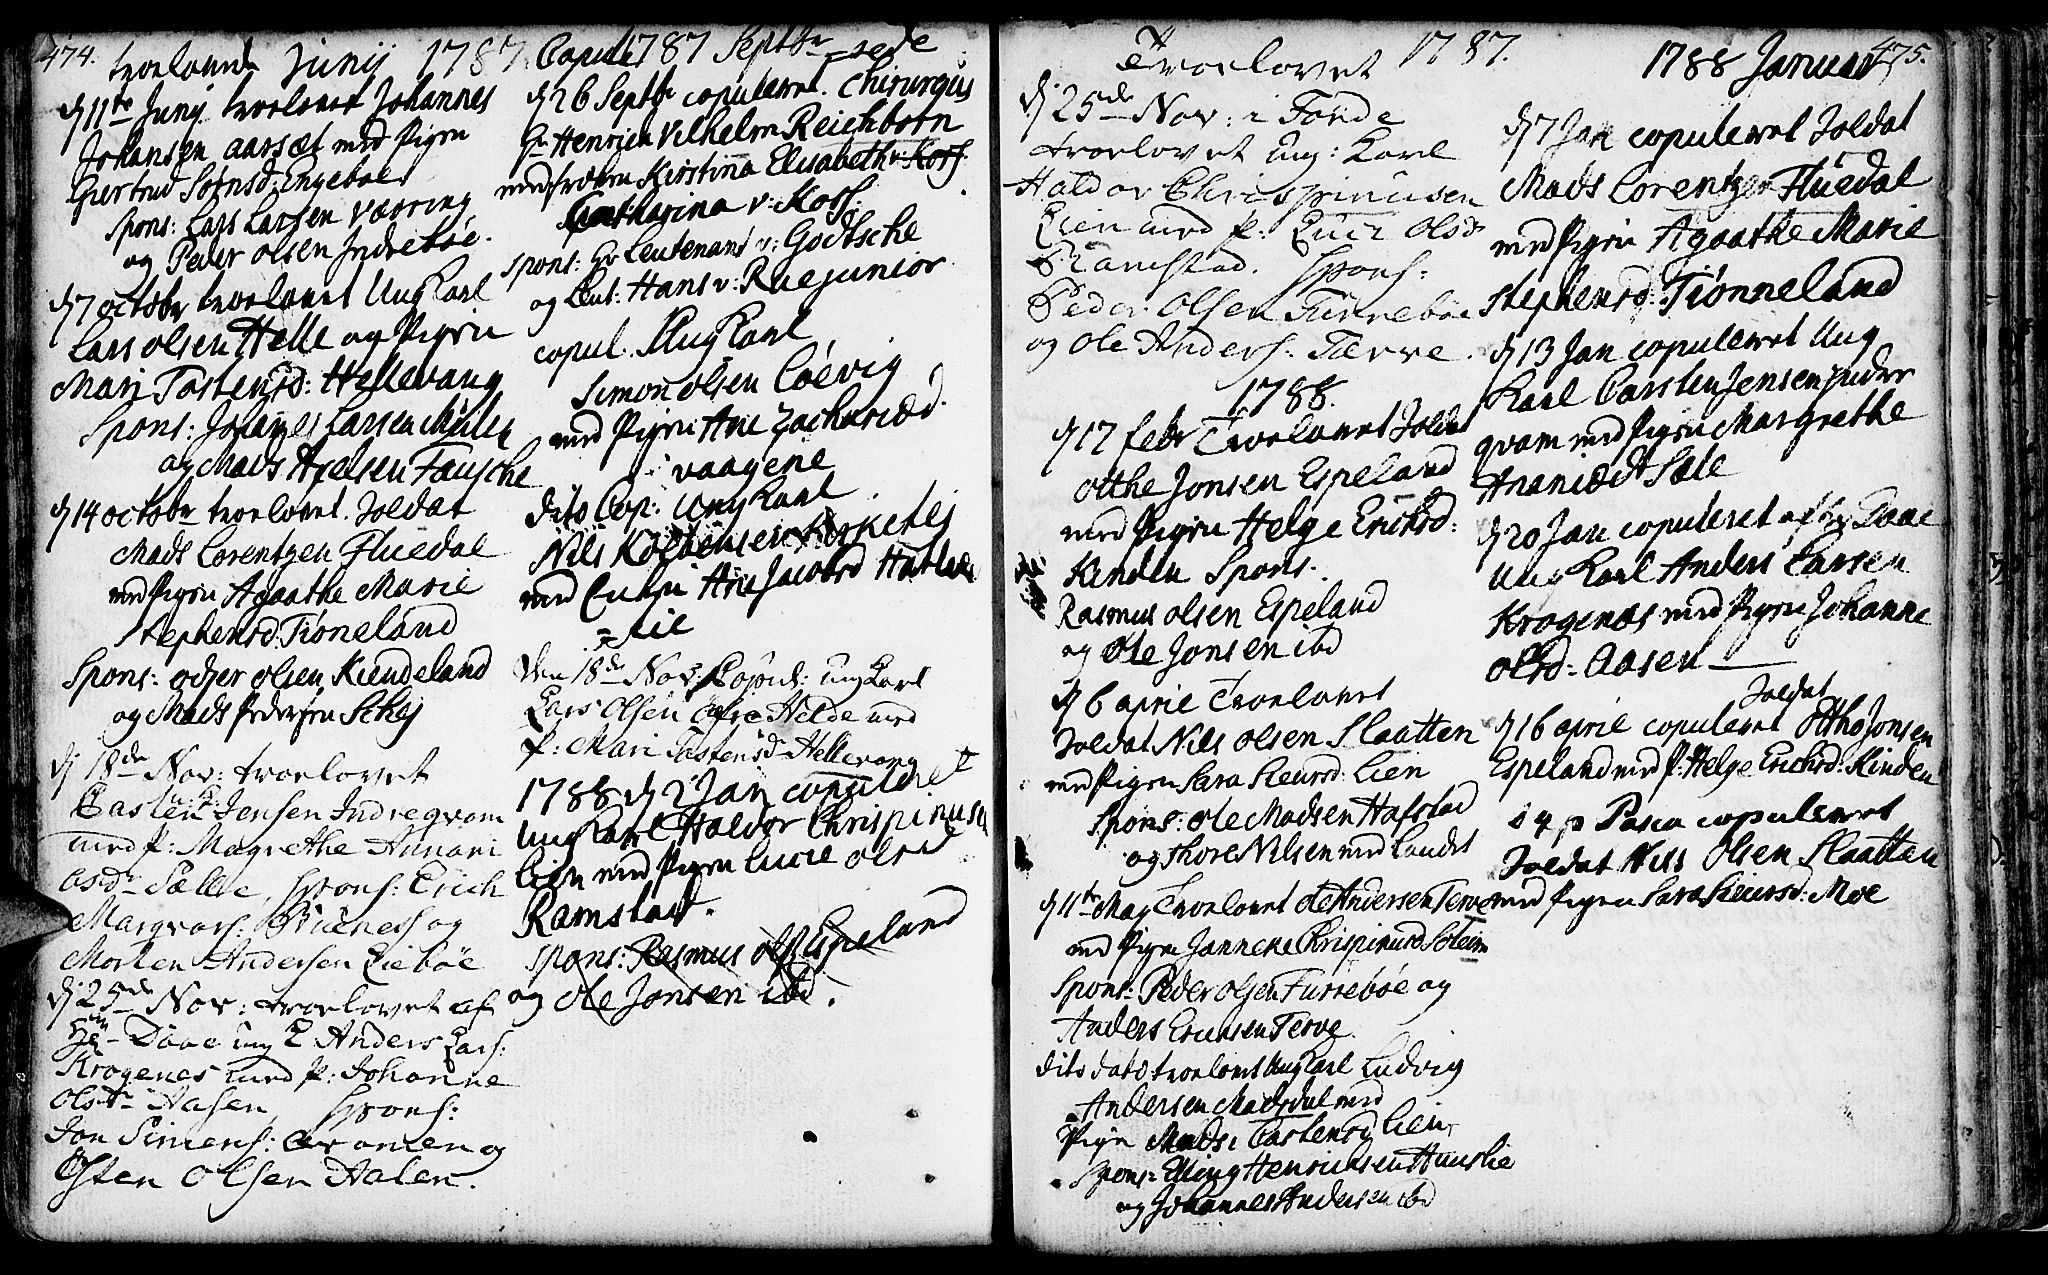 474.
troelovede Junij 1787
d 11te Junij troelovet Johannes
Johansen aarsæt med Pigen
Giertrud Sørnsd: Engeboe
Spons: Lars Larsen Værring
og Peder olsen Indrebøe.
d 7 octobr troelovet Ung Karl
Lars olsen Helle og Pigen
Mari Tostensd: Hellevang
Spons: Johannes Larsen
og Mads Axelsen Fausche
d 14 octobr troelovet Soldat
Mads Lorentzen Fluedal
med Pigen Agaathe Marie
Stephensd: Tioneland
Spons: odger olsen Kiendeland
og Mads Pedersen Schej
d 18de Nov: troelovet
Casten Jensen Indreqvam
med P: Magrethe Annani
asdr Sælle, Spons: Erich
Marqvars: Buenes og
Morten Andersen Liebøe
d 25de Nov: troelovet af
Hr. Daae ung K Anders Lars:
Krogenes med P: Johanne
Olsdr Aasen, Spons:
Jon Simens: og
Østen Olsen Aalen.
Copul 1787 Septbr
d 26 Septbr copuleret. Chirurgus
Hr Henrich Vilhelm Reichborn
med frøken Kirstina Elisabeth v: Korf
Catharina v: Korf:
Spons: Hr Leutenant v: Godtsche
og Leut: Hans v: Rue junior
copul. Ung Karl
Simon olsen Løevig
med Pigen Ane Zachariæd.
vaagene
dito Cop: Ung Karl
Nils Kolbensen Kirketej
med Enken Ane Jacobsd Hatle
= lie
Den 18de Nov: Copul: ung Karl
Lars Olsen Helde med
P: Mari Tostensd Hellevang
1788 d 2 Jan copuleret
Ung Karl Haldor Chrispinusen
Lien med Pigen Lucie olsd
Ramstad.
Spons: Rasmus ols Espeland
og Ole Jonsen ibd.
Troelovet 1787.
d 25de Nov: i Førde
troelovet ung: Karl
Haldor Chrispinusen
Lien med P: Luci Olsdr
Ramstad. Spons:
Peder Olsen Furrebøe
og Ole Anders: Tærve.
1788.
d 17 febr Troelovet Soldat
Otthe Jonsen Espeland
med Pigen Helge Erichsd:
Kinden Spons:
Rasmus olsen Espeland
og Ole Jonsen ibd
d 6 april Troelovet
Soldat Nils olsen Slaatten
med Pigen Sara Siursd: Lien
Spons: Ole Madsen Hafstad
og Thore Nilsen
d 11te May Troelovet Ole Andersen Terve
med Pigen Janneke Chrispinusd Soleim
Spons: Peder olsen Furrebøe og
Anders Ericksen Terve
dito dato troelovet Ung Karl Ludvig
Andersen Madsdal med
Pigen Madsi Castensd Lien
Spons: Elling Henrichsen Hunslie
og Johannes Andersen ibd
1788 Januar
475.
d 7 Jan copuleret Soldat
Mads Lorentzen Fluedal
med Pigen Agaathe Marie
Stephensd: Tiønneland
d 13 Jan copuleret Ung
Karl Carsten Jensen Inder
qvam med Pigen Margrethe
Ananiæd Sæle
d 20 Jan copuleret af Hr Daae
Ung Karl Anders Larsen
Krogenæs med Pigen Johanne
olsd: Aasen
d 16 april copuleret Soldat Ottho Jonsen
Espeland med P: Helge Erichsd: Kinden
d 4 p Pasca copuleret
Soldat Nils Olsen Slaatten
med Pigen Sara Siursd: Moe